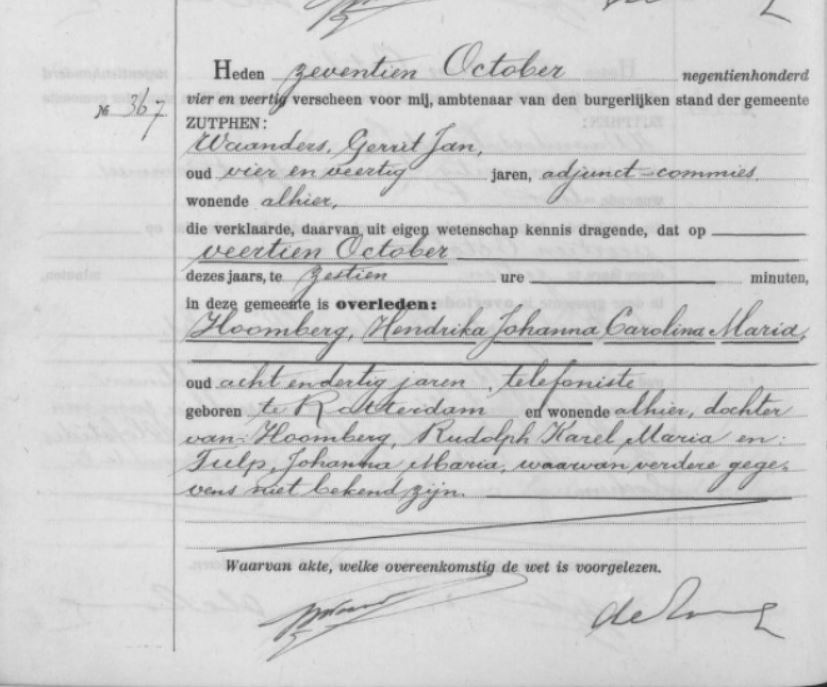 Heden zeventien October negentienhonderd
vier en veertig verscheen voor mij, ambtenaar van den burgerlijken stand der gemeente
№ 367
ZUTPHEN:
Waanders, Gerrit Jan,
oud vier en veertig jaren, adjunct-commies.
wonende alhier,
die verklaarde, daarvan uit eigen wetenschap kennis dragende, dat op
veertien October
dezes jaars, te zestien ure minuten,
in deze gemeente is overleden:
Hoomberg, Hendrika Johanna Carolina Maria,
oud acht en dertig jaren, telefoniste
geboren te Rotterdam en wonende alhier, dochter
van: Hoomberg, Rudolph Karel Maria en:
Tulp, Johanna Maria, waarvan verdere gege-
vens niet bekend zijn.
Waarvan akte, welke overeenkomstig de wet is voorgelezen.